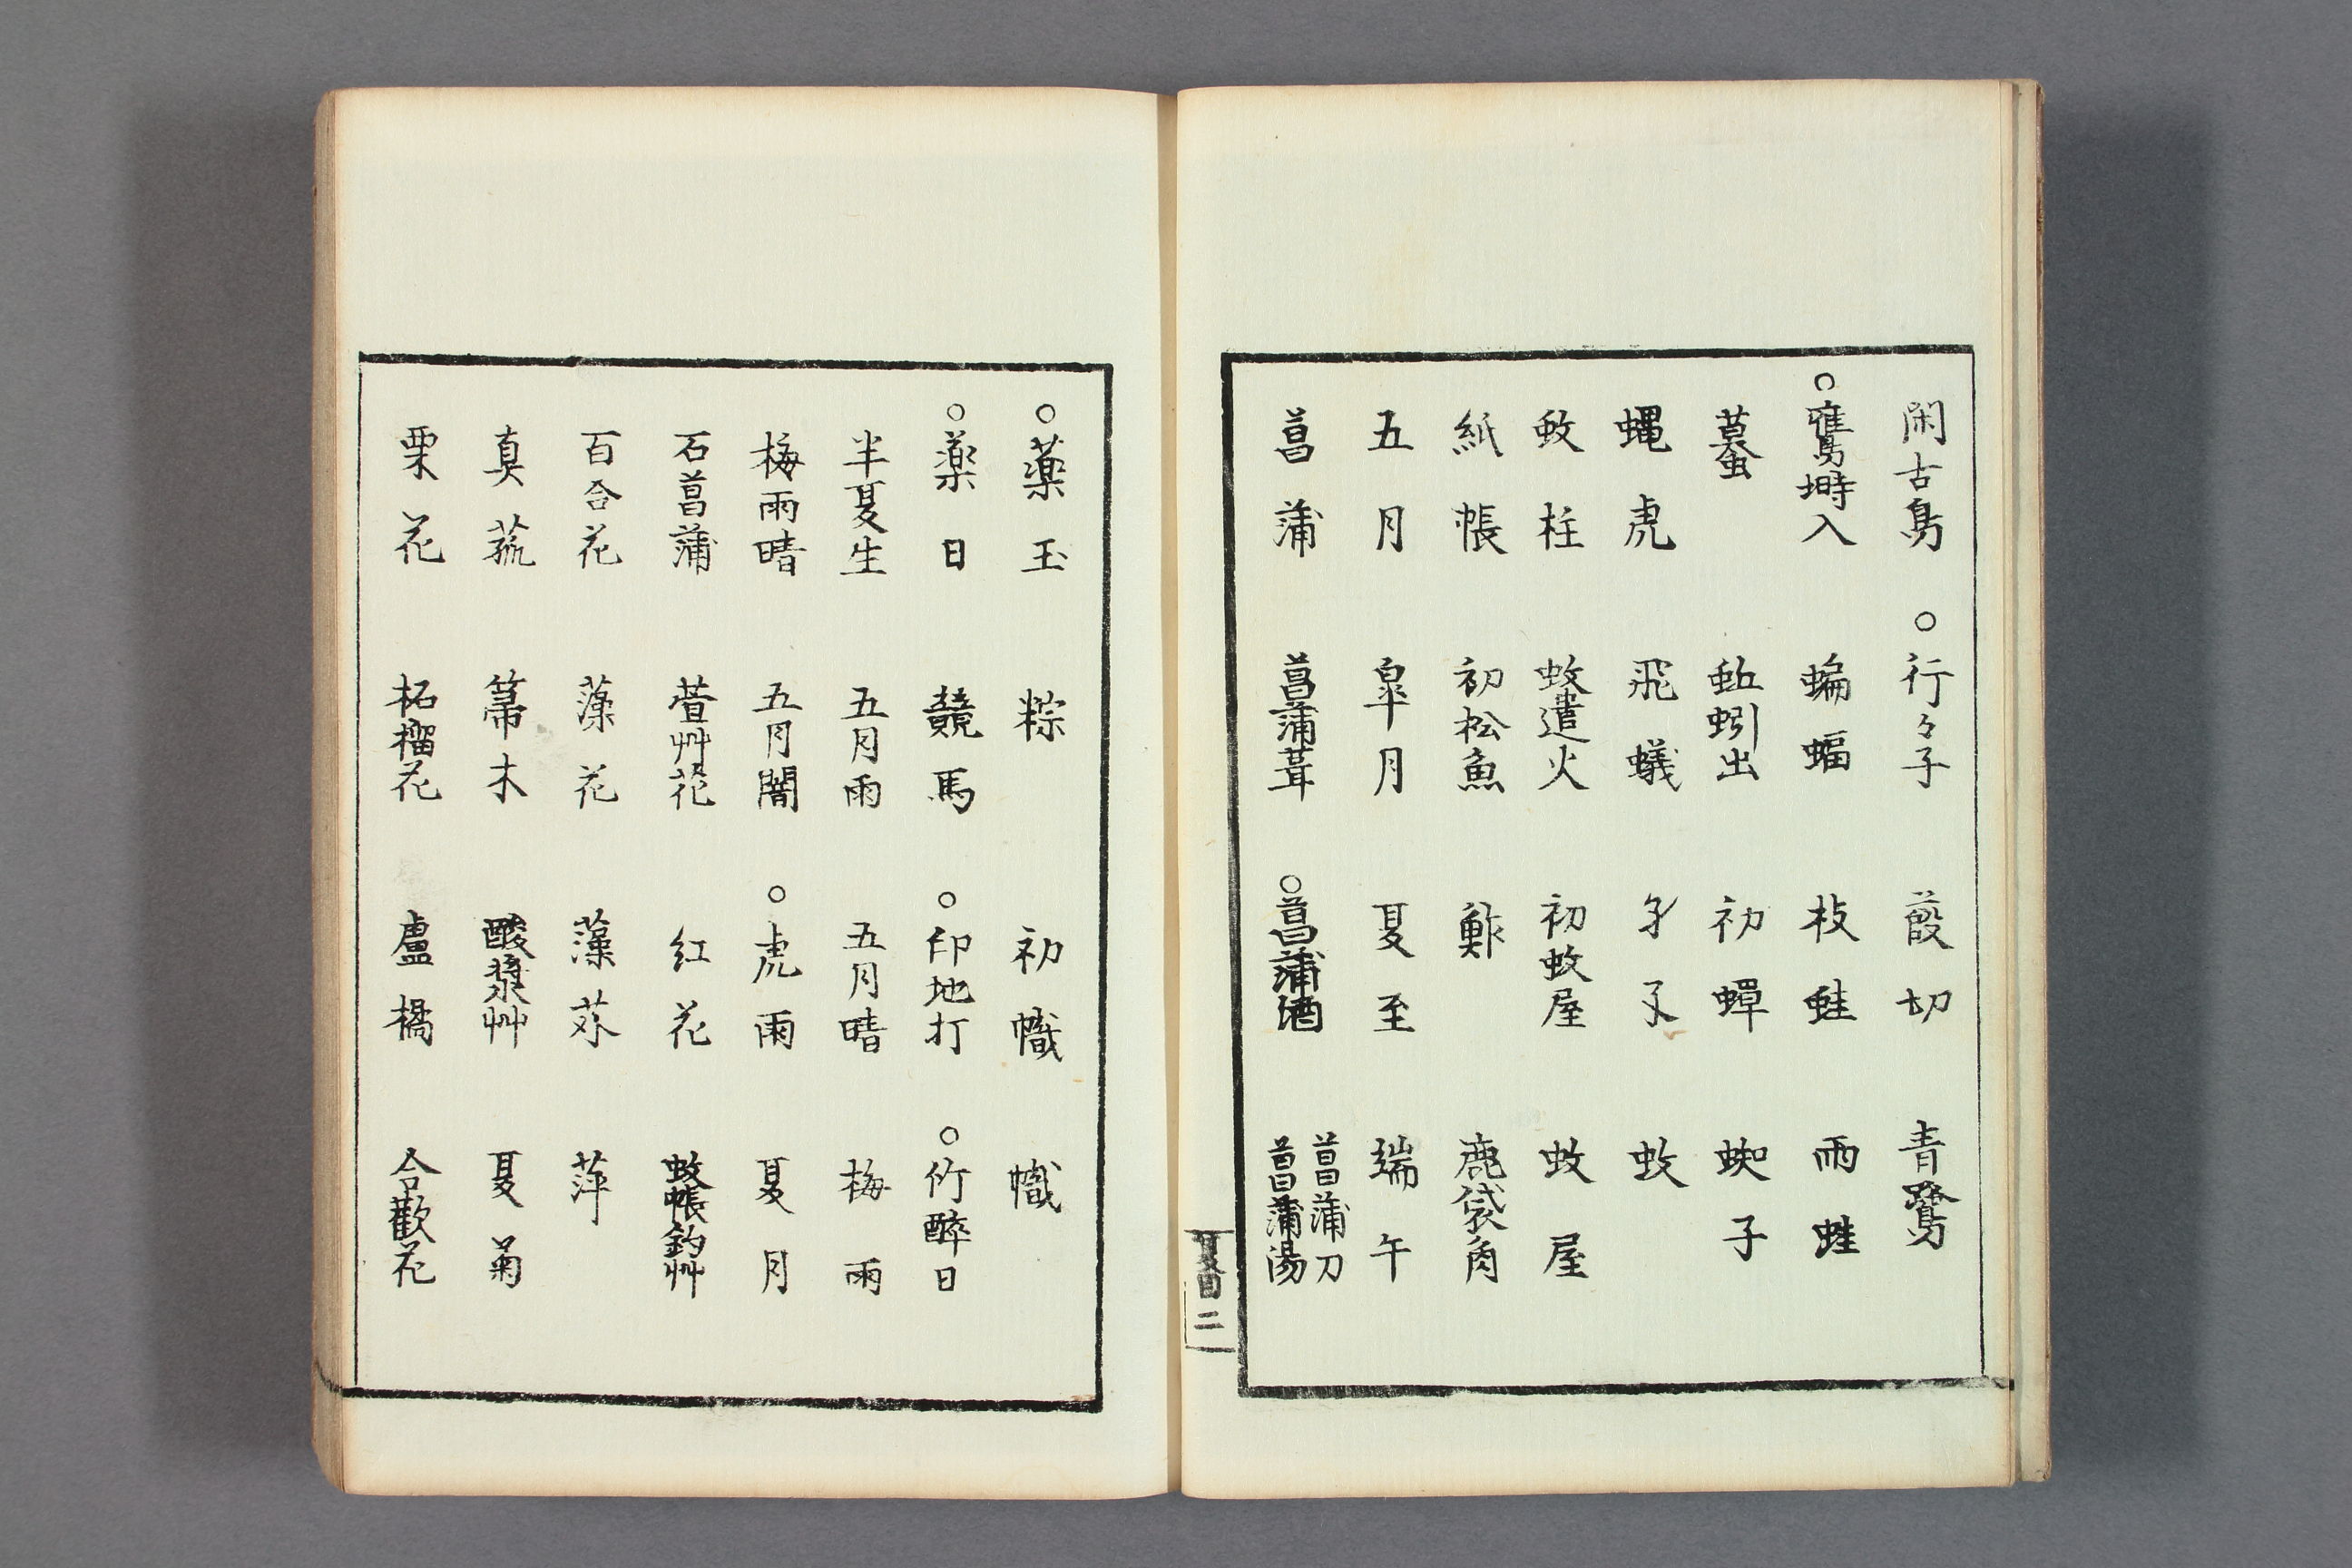 閑古鳥 ○行々子 葭切 青鷺
○雞鳥塒入 蝙蝠 枝蛙 雨蛙
蟇 蚯蚓出 初蟬 蜘子
蝿虎 飛蟻 孑孓 蚊
蚊柱 蚊遣火 初蚊屋 蚊屋
紙帳 初松魚 鮓 鹿袋角
五月 皐月 夏至 端午
菖蒲 菖蒲葺 ○菖蒲酒 菖蒲刀 菖蒲湯
夏目 二
○薬玉 粽 初幟 幟
○薬日 競馬 ○印地打 ○竹酔日
半夏生 五月雨 五月晴 梅雨
梅雨晴 五月闇 ○虎雨 夏月
石菖蒲 萱艸花 紅花 蚊帳釣艸
百合花 藻花 藻苅 萍
真菰 箒木 酸漿艸 夏菊
栗花 柘榴花 盧橘 合歡花